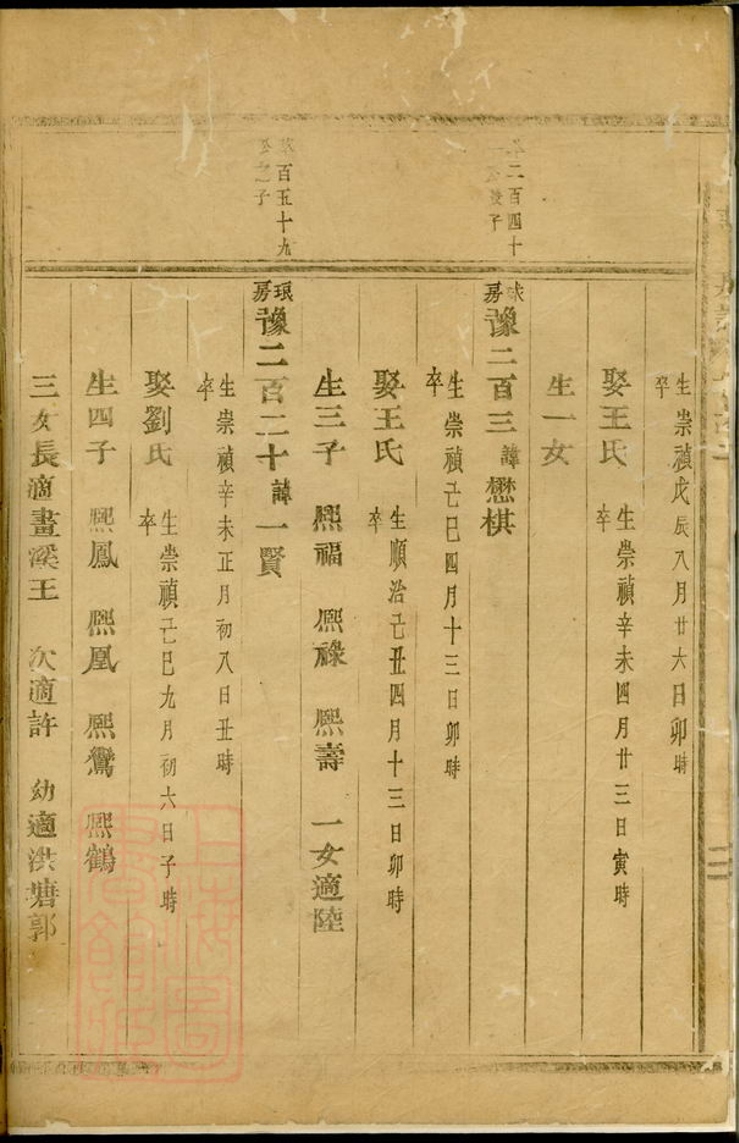 生崇禎戊辰八月廿六日卯時
卒
娶王氏
生崇禎辛未四月廿三日寅時
卒
生一女
二百四十
子
房
豫二百三諱懋棋
生崇禎己巳四月十三日卯時
卒
娶王氏
生順治己丑四月十三日卯時
卒
生三子 熙福 熙祿 熙壽 一女適陸
百五十九
之子
琅房
豫二百二十諱一賢
生崇禎辛未正月初八日丑時
卒
娶劉氏
生崇禎己巳九月初六日子時
卒
生四子 熙鳳 熙凰 熙鸞 熙鶴
三女長適畫溪王 次適許 幼適洪塘郭
上海圖書館藏